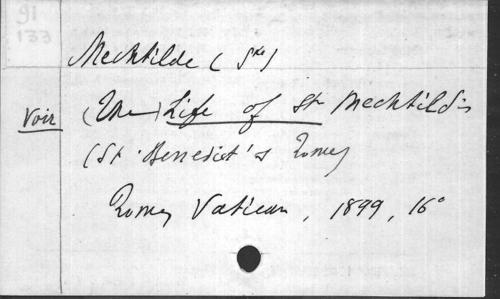 91
133
Mechtilde (Ste)
Voir (The) Life of St Mechtildis
(St. Benedict's Rome)
Rome, Vatican, 1899, 16°